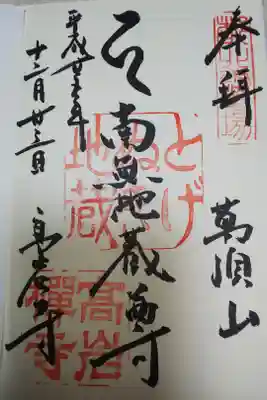 奉拝
萬頂山
とげ
ぬき
地蔵
南無地蔵尊
高岩
禅寺
高岩寺
平成廿五年
十二月廿三日